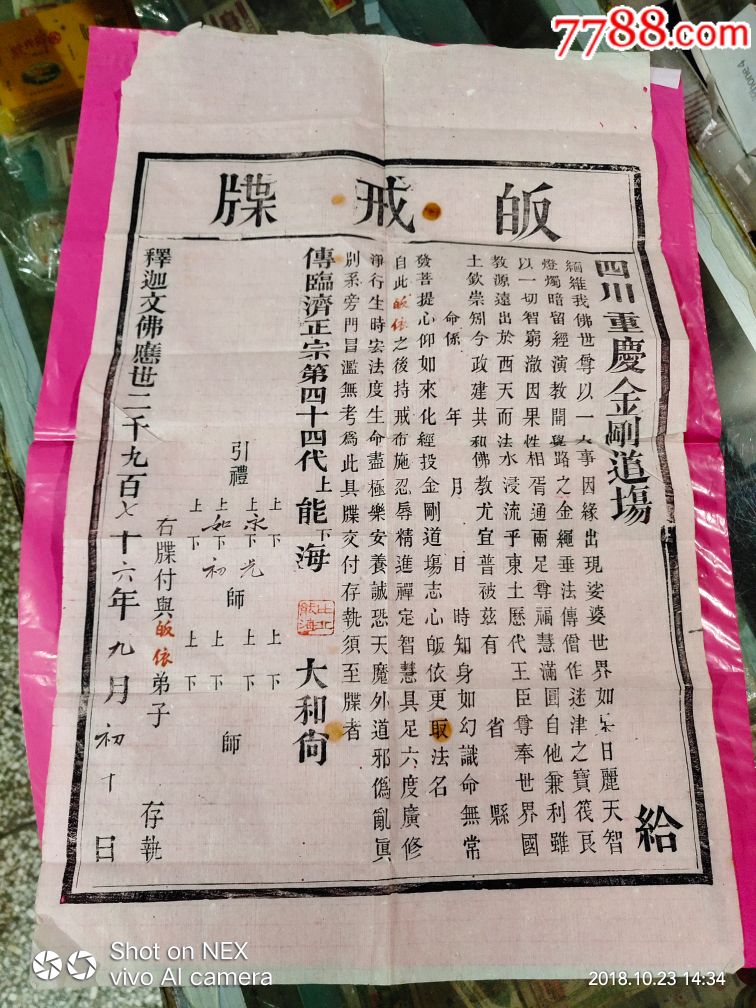 7788.com
皈戒牒
四川重慶金剛道塲 給
緬維我佛世尊以一大事因緣出現娑婆世界如杲日麗天智
燈燭暗留經演教開覺路之金繩垂法傳僧作迷津之寶筏良
以一切智窮澈因果性相胥通兩足尊福慧滿圓自他兼利雖
教源遠出於西天而法水浸流乎東土歷代王臣尊奉世界國
土欽崇矧今政建共和佛教尤宜普被茲有 省 縣
命係 年 月 日 時知身如幻識命無常
發菩提心仰如來化經投金剛道塲志心皈依更取法名
自此皈依之後持戒布施忍辱精進禪定智慧具足六度廣修
淨行生時宏法度生命盡極樂安養誠恐天魔外道邪僞亂眞
別系旁門冒濫無考爲此具牒交付存執須至牒者
傳臨濟正宗第四十四代上能下海 大和尙
比丘能海
上 下 上 下
引禮 上永下光 師 上 下 師
上如下初 上 下
右牒付與皈依弟子 存執
釋迦文佛應世二千九百七十六年九月初十日
Shot on NEX
vivo AI camera
2018.10.23 14:34